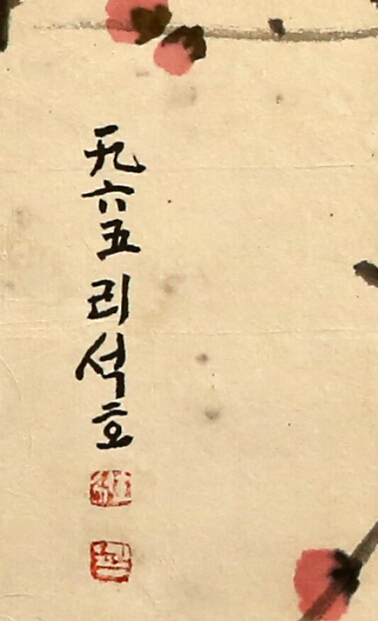 一九六五 리석호